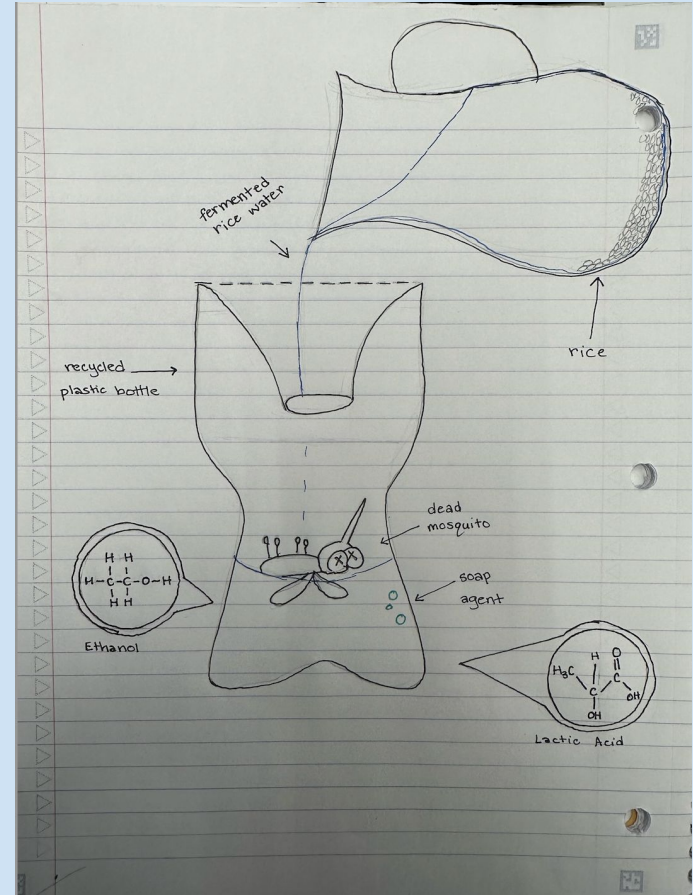 fermented
rice water
rice
recycled
plastic bottle
dead
mosquito
soap
agent
H H
H-C-C-O-H
H H
Ethanol
O
H
H₃C
C
C
OH
OH
Lactic Acid